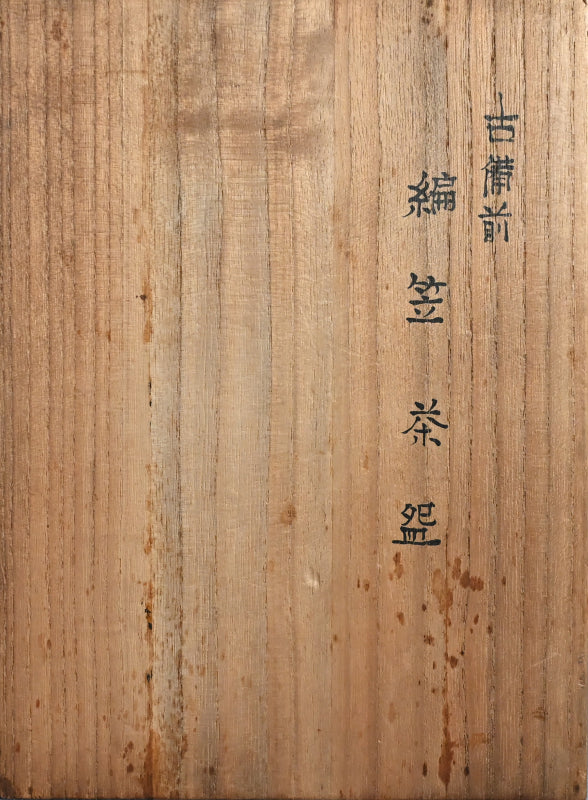 古備前
編笠茶盌